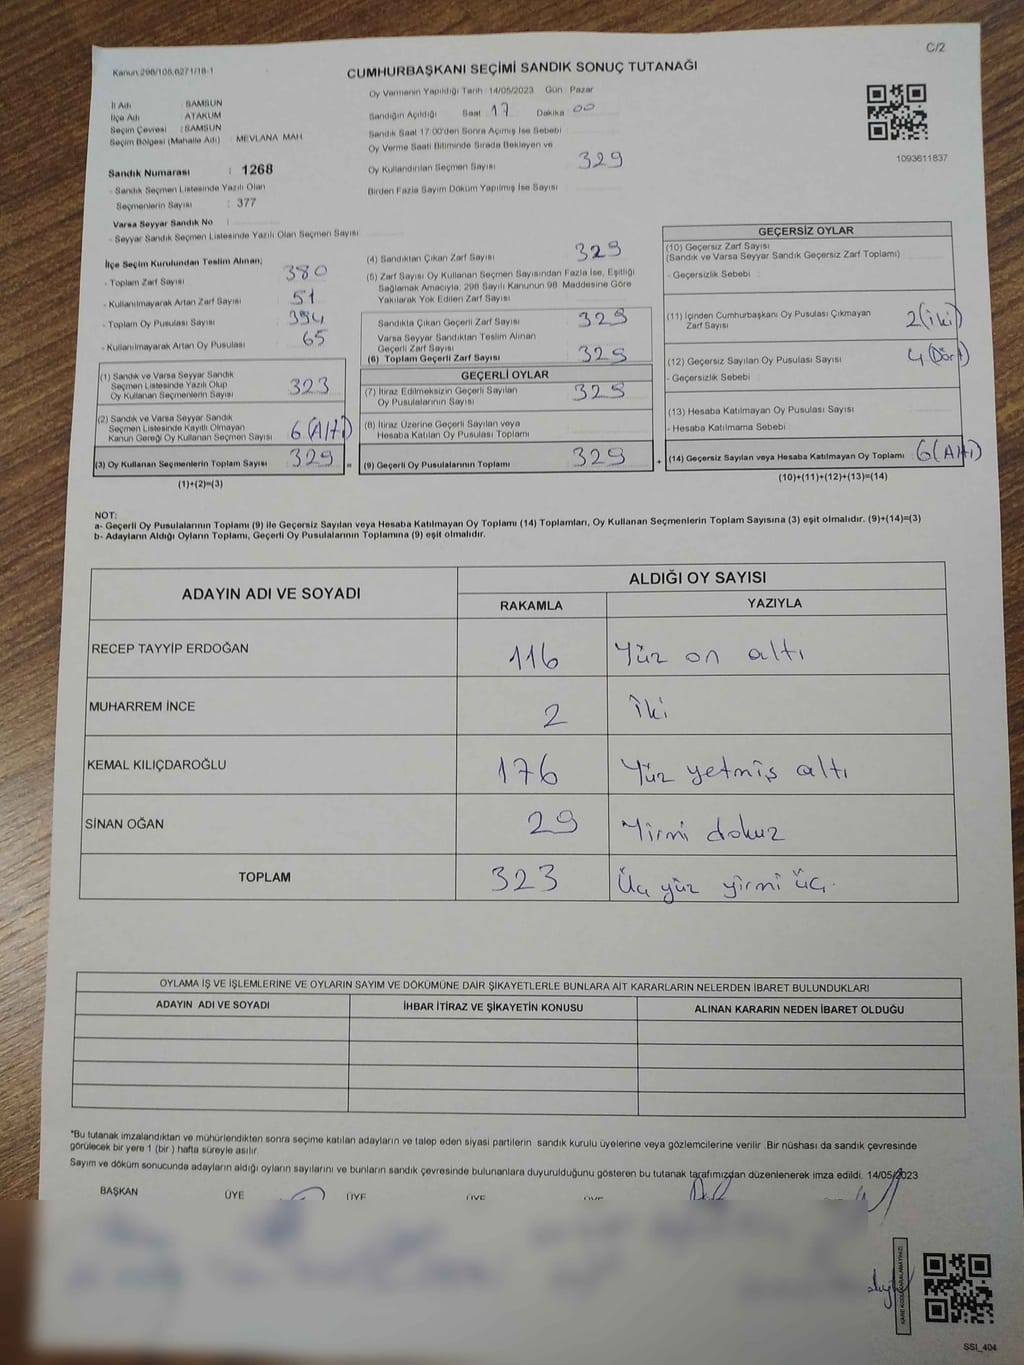 C/2
Kanun:298/105,6271/18-1
CUMHURBAŞKANI SEÇİMİ SANDIK SONUÇ TUTANAĞI
İl Adı : SAMSUN
İlçe Adı : ATAKUM
Seçim Çevresi : SAMSUN
Seçim Bölgesi (Mahalle Adı) : MEVLANA MAH
Sandık Numarası : 1268
- Sandık Seçmen Listesinde Yazılı Olan
Seçmenlerin Sayısı : 377
Varsa Seyyar Sandık No :
- Seyyar Sandık Seçmen Listesinde Yazılı Olan Seçmen Sayısı
Oy Vermenin Yapıldığı Tarih :14/05/2023 Gün Pazar
Sandığın Açıldığı Saat 17 Dakika 00
Sandık Saat 17:00'den Sonra Açımış İse Sebebi
Oy Verme Saati Bitiminde Sırada Bekleyen ve
Oy Kullandırılan Seçmen Sayısı 329
Birden Fazla Sayım Döküm Yapılmış İse Sayısı
1093611837
İlçe Seçim Kurulundan Teslim Alınan;
- Toplam Zarf Sayısı 380
- Kullanılmayarak Artan Zarf Sayısı 51
- Toplam Oy Pusulası Sayısı 394
- Kullanılmayarak Artan Oy Pusulası 65
(1) Sandık ve Varsa Seyyar Sandık
Seçmen Listesinde Yazılı Olup
Oy Kullanan Seçmenlerin Sayısı 323
(2) Sandık ve Varsa Seyyar Sandık
Seçmen Listesinde Kayıtlı Olmayan
Kanun Gereği Oy Kullanan Seçmen Sayısı 6 (Altı)
(3) Oy Kullanan Seçmenlerin Toplam Sayısı 329 =
(1)+(2)=(3)
(4) Sandıktan Çıkan Zarf Sayısı 329
(5) Zarf Sayısı Oy Kullanan Seçmen Sayısından Fazla İse, Eşitliği
Sağlamak Amacıyla, 298 Sayılı Kanunun 98. Maddesine Göre
Yakılarak Yok Edilen Zarf Sayısı
Sandıkta Çıkan Geçerli Zarf Sayısı 329
Varsa Seyyar Sandıktan Teslim Alınan
Geçerli Zarf Sayısı
(6) Toplam Geçerli Zarf Sayısı 329
GEÇERLİ OYLAR
(7) İtiraz Edilmeksizin Geçerli Sayılan
Oy Pusulalarının Sayısı 329
(8) İtiraz Üzerine Geçerli Sayılan veya
Hesaba Katılan Oy Pusulası Toplamı
(9) Geçerli Oy Pusulalarının Toplamı 329 +
GEÇERSİZ OYLAR
(10) Geçersiz Zarf Sayısı
(Sandık ve Varsa Seyyar Sandık Geçersiz Zarf Toplamı)
- Geçersizlik Sebebi
(11) İçinden Cumhurbaşkanı Oy Pusulası Çıkmayan
Zarf Sayısı 2 (iki)
(12) Geçersiz Sayılan Oy Pusulası Sayısı 4 (Dört)
- Geçersizlik Sebebi :
(13) Hesaba Katılmayan Oy Pusulası Sayısı
- Hesaba Katılmama Sebebi
(14) Geçersiz Sayılan veya Hesaba Katılmayan Oy Toplamı : 6 (Altı)
(10)+(11)+(12)+(13)=(14)
NOT:
a- Geçerli Oy Pusulalarının Toplamı (9) ile Geçersiz Sayılan veya Hesaba Katılmayan Oy Toplamı (14) Toplamları, Oy Kullanan Seçmenlerin Toplam Sayısına (3) eşit olmalıdır. (9)+(14)=(3)
b- Adayların Aldığı Oyların Toplamı, Geçerli Oy Pusulalarının Toplamına (9) eşit olmalıdır.
ADAYIN ADI VE SOYADI
ALDIĞI OY SAYISI
RAKAMLA YAZIYLA
RECEP TAYYİP ERDOĞAN 116 Yüz on altı
MUHARREM İNCE 2 İki
KEMAL KILIÇDAROĞLU 176 Yüz yetmiş altı
SİNAN OĞAN 29 Yirmi dokuz
TOPLAM 323 Üç yüz yirmi üç.
OYLAMA İŞ VE İŞLEMLERİNE VE OYLARIN SAYIM VE DÖKÜMÜNE DAİR ŞİKAYETLERLE BUNLARA AİT KARARLARIN NELERDEN İBARET BULUNDUKLARI
ADAYIN ADI VE SOYADI İHBAR İTİRAZ VE ŞİKAYETİN KONUSU ALINAN KARARIN NEDEN İBARET OLDUĞU
*Bu tutanak imzalandıktan ve mühürlendikten sonra seçime katılan adayların ve talep eden siyasi partilerin sandık kurulu üyelerine veya gözlemcilerine verilir .Bir nüshası da sandık çevresinde
görülecek bir yere 1 (bir ) hafta süreyle asılır.
Sayım ve döküm sonucunda adayların aldığı oyların sayılarını ve bunların sandık çevresinde bulunanlara duyurulduğunu gösteren bu tutanak tarafımızdan düzenlenerek imza edildi. 14/05/2023
BAŞKAN ÜYE ÜYE ÜYE ÜYE
KARE KODU KARALAMAYINIZ!
SSI_404